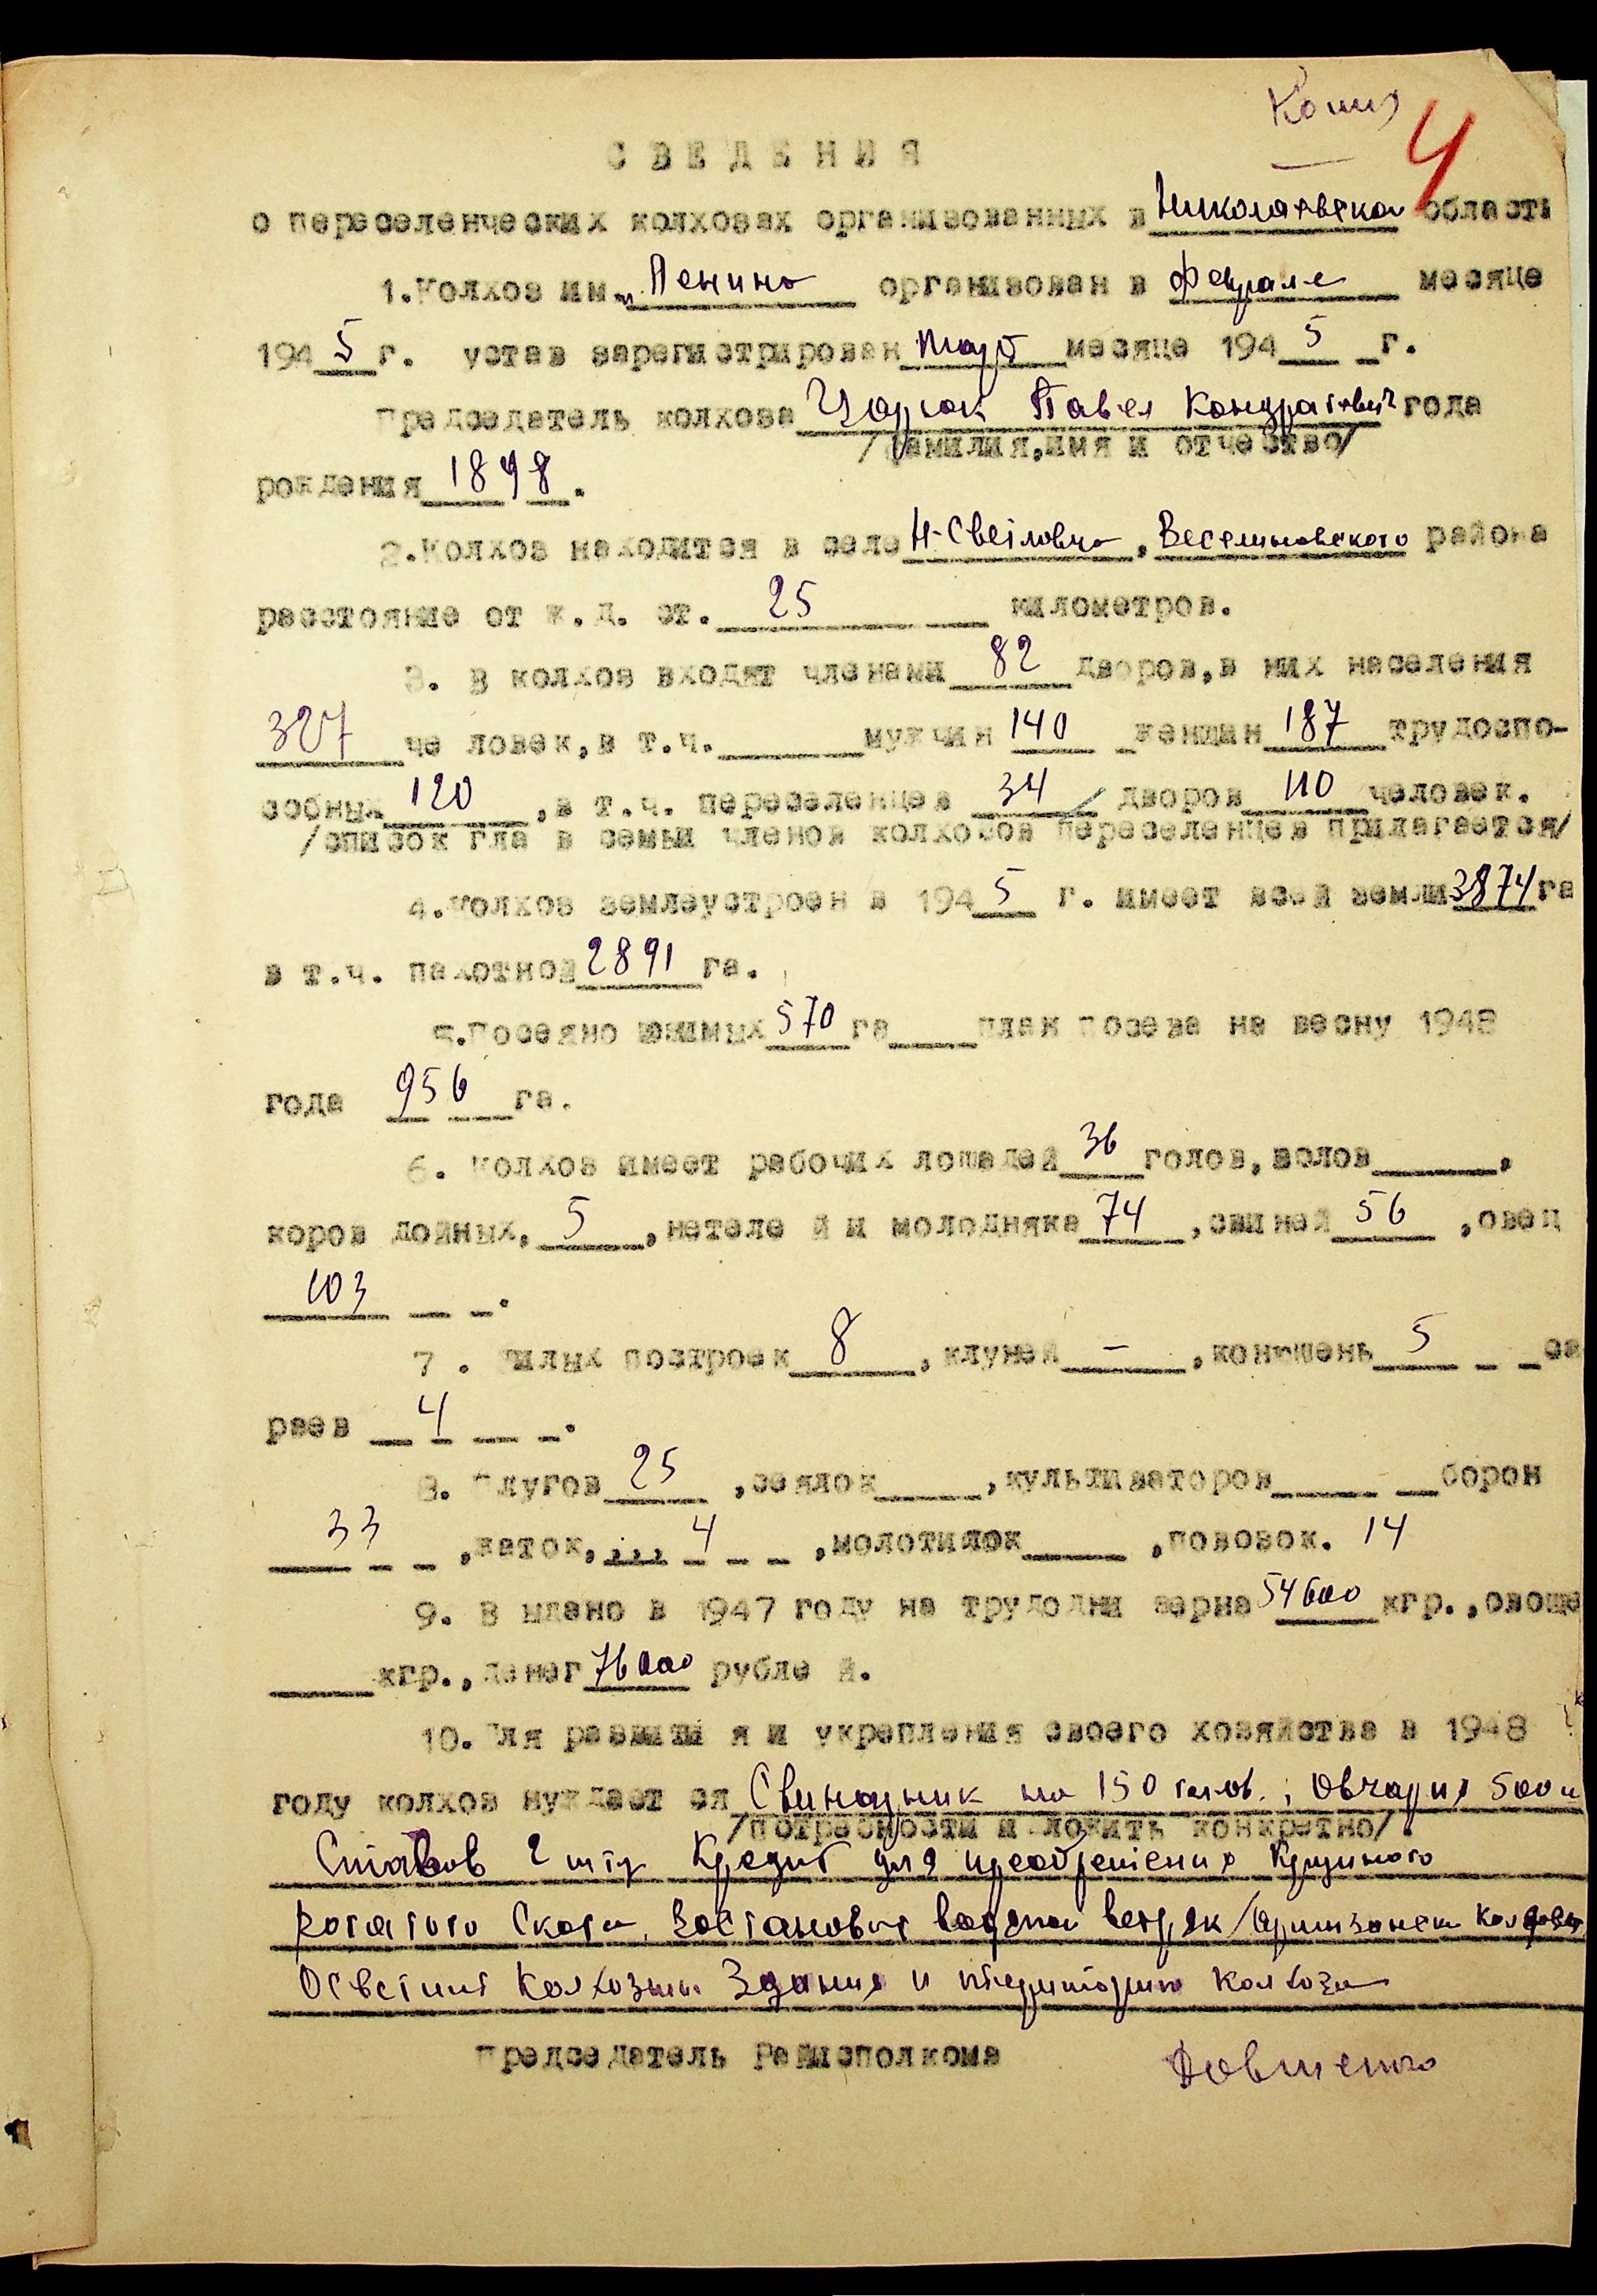 Копия
4
СВЕДЕНИЯ
о переселенческих колхозах организованных в Николаевской област
1.Колхоз им." Ленина организован в феврале месяце
194 5 г. устав зарегистрирован март месяце 194 5 г.
Председатель колхоза Павел Кондратович года
/фамилия,имя и отчество/
рождения 1898.
2.Колхоз находится в селе Н-Светловка, Веселиновского района
расстояние от ж.д. ст. 25 километров.
3. В колхоз входят членами 82 дворов,в них населения
327 человек,в т.ч. мужчин 140 женщин 187 трудоспо-
собных 120 ,в т.ч. переселенцев 34 дворов 110 человек.
/список глав семьи членов колхозов переселенцев прилагается/
4.Колхоз землеустроен в 194 5 г. имеет всей земли 3874 га
в т.ч. пахотной 2891 га.
5.Посеяно озимых 570 га план посева на весну 1948
года 956 га.
6. Колхоз имеет рабочих лошадей 36 голов,волов ,
коров дойных, 5 ,нетелей и молодняка 74 ,свиней 56 ,овец
103 .
7. Жилых построек 8 ,клуней - ,конюшень 5 са
раев 4 .
8. Плугов 25 ,сеялок ,культиваторов борон
33 ,каток, 4 ,молотилок ,повозок. 14
9. Выдано в 1947 году на трудодни зерна 54600 кгр.,овоще
кгр.,денег 76000 рублей.
10. Для развития и укрепления своего хозяйства в 1948
году колхоз нуждается Свинарник на 150 голов. ; Овчарня 500
/потребности изложить конкретно/.
2 шт Кредит для преобретения Крупного
рогатого Скота. Востановит ветряк /
Осветит Колхозные Здания и территорию Колхоза
Председатель Райисполкома Довженко